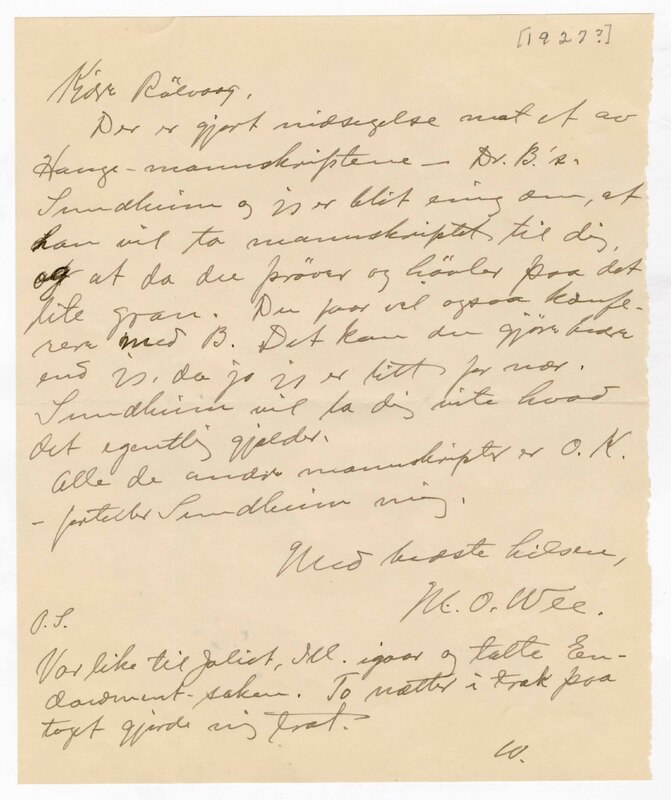 [1927?]
Kjære Rölvaag,
Der er gjort indsigelse mot et av
Hauge-manuskriptene — Dr. B.'s.
Sundheim og jeg er blit enig om, at
han vil ta manuskriptet til dig,
og at da du prøver og høvler paa det
lite gran. Du faar vel ogsaa konfe-
rere med B. Det kan du gjøre bedre
end jeg, da jo jeg er litt for nær.
Sundheim vil la dig vite hvad
det egentlig gjelder.
Alle de andre manuskripter er O.K.
- forteller Sundheim mig.
Med bedste hilsen,
M. O. Wee.
P.S.
Var like til Joliet, Ill. igaar og talte En-
dowment-saken. To nætter i træk paa
toget gjorde mig træt.
W.